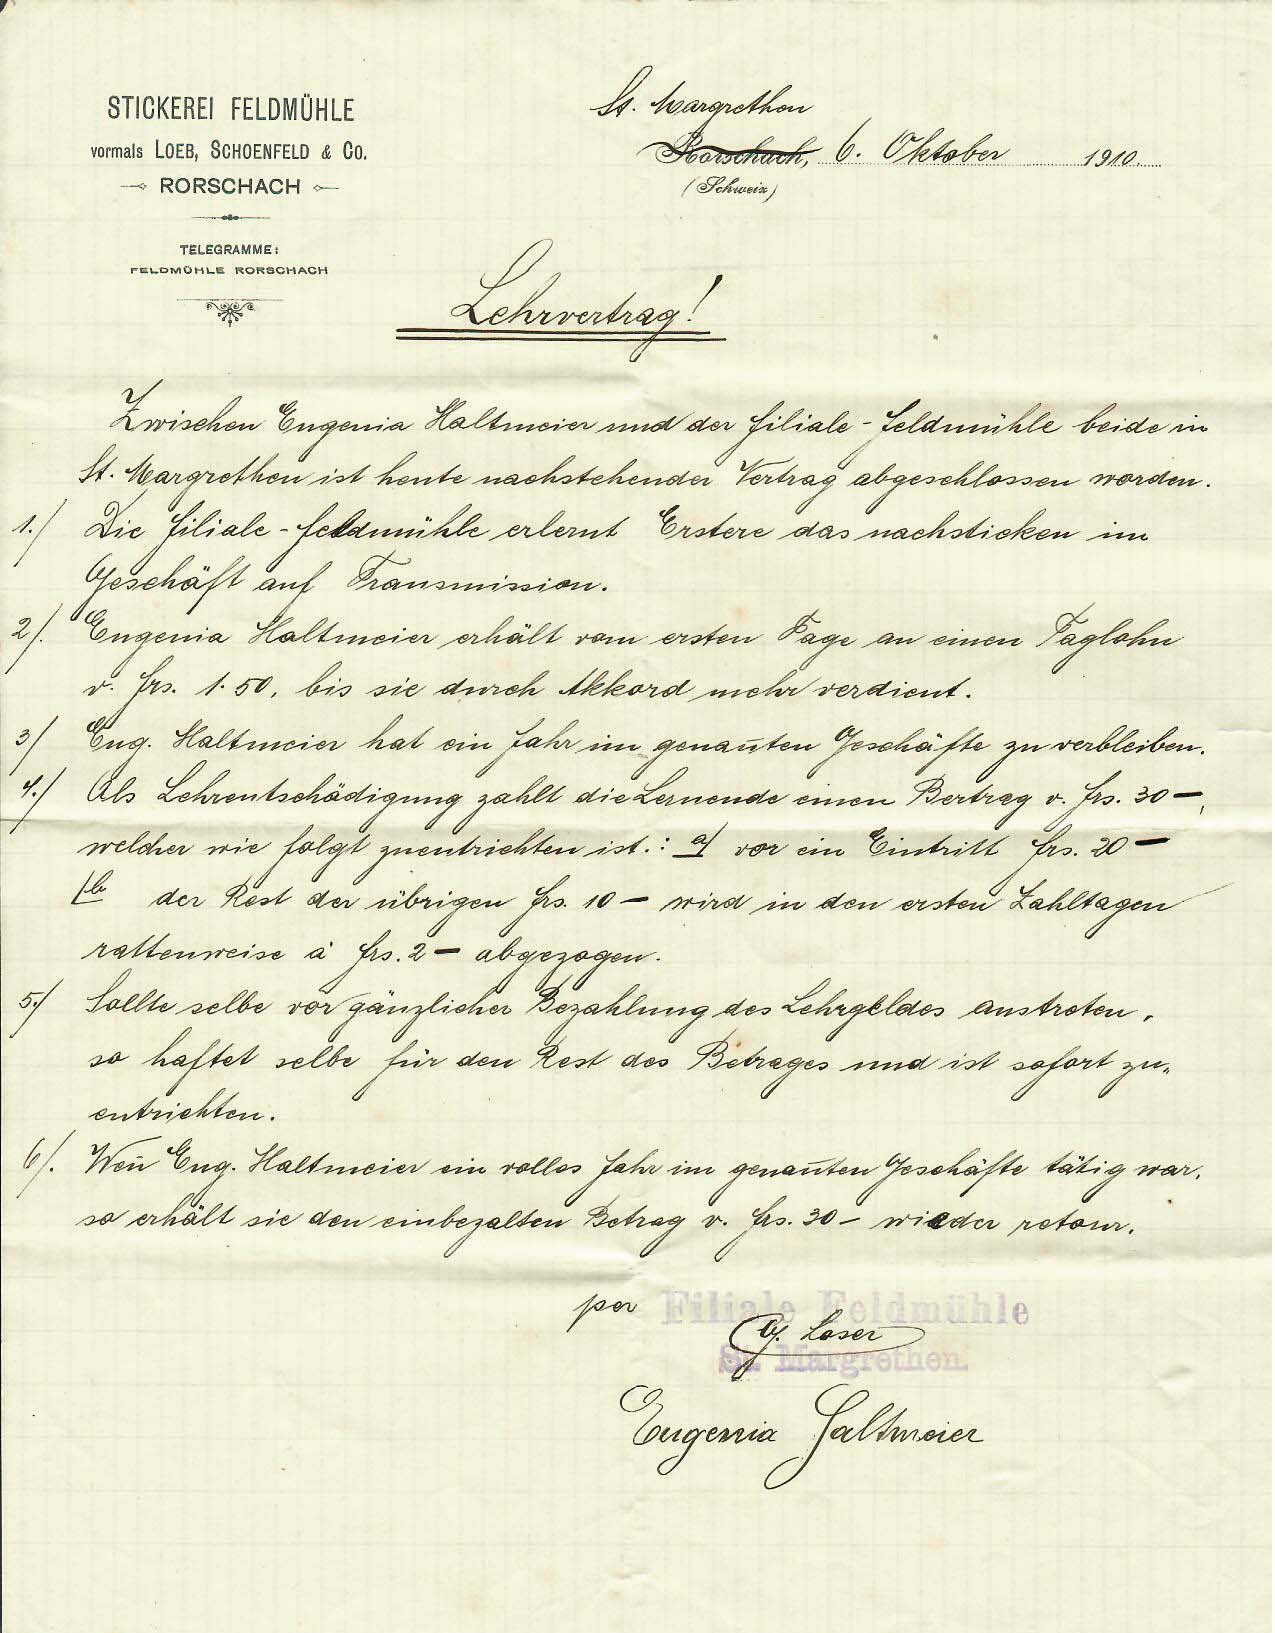 STICKEREI FELDMÜHLE
vormals LOEB, SCHOENFELD & CO.
RORSCHACH
TELEGRAMME:
FELDMÜHLE RORSCHACH
St. Margrethen
Rorschach, 6. Oktober 1910.
(Schweiz)
Lehrvertrag!
Zwischen Eugenia Haltmeier und der Filiale-Feldmühle beide in
St. Margrethen ist heute nachstehender Vertrag abgeschlossen worden.
1./ Die Filiale-Feldmühle erlernt Erstere das nachsticken im
Geschäft auf Transmission.
2/. Eugenia Haltmeier erhält vom ersten Tage an einen Taglohn
v. frs. 1.50, bis sie durch Akkord mehr verdient.
3/ Eug. Haltmeier hat ein Jahr im genan̄ten Geschäfte zu verbleiben.
4./ Als Lehrentschädigung zahlt die Lernende einen Bertrag v. frs. 30—,
welcher wie folgt zuentrichten ist.: a/ vor ein Eintritt frs. 20—
/b der Rest der übrigen frs. 10— wird in den ersten Zahltagen
rattenweise à frs. 2— abgezogen.
5./ Sollte selbe vor gänzlicher Bezahlung des Lehrgeldes austreten,
so haftet selbe für den Rest des Betrages und ist sofort zu„
entrichten.
6/. Wen̄ Eug. Haltmeier ein volles Jahr im genan̄ten Geschäfte tätig war,
so erhält sie den einbezalten Betrag v. frs. 30— wieder retour.
per Filiale Feldmühle
G. Loser
St. Margrethen.
Eugenia Haltmeier